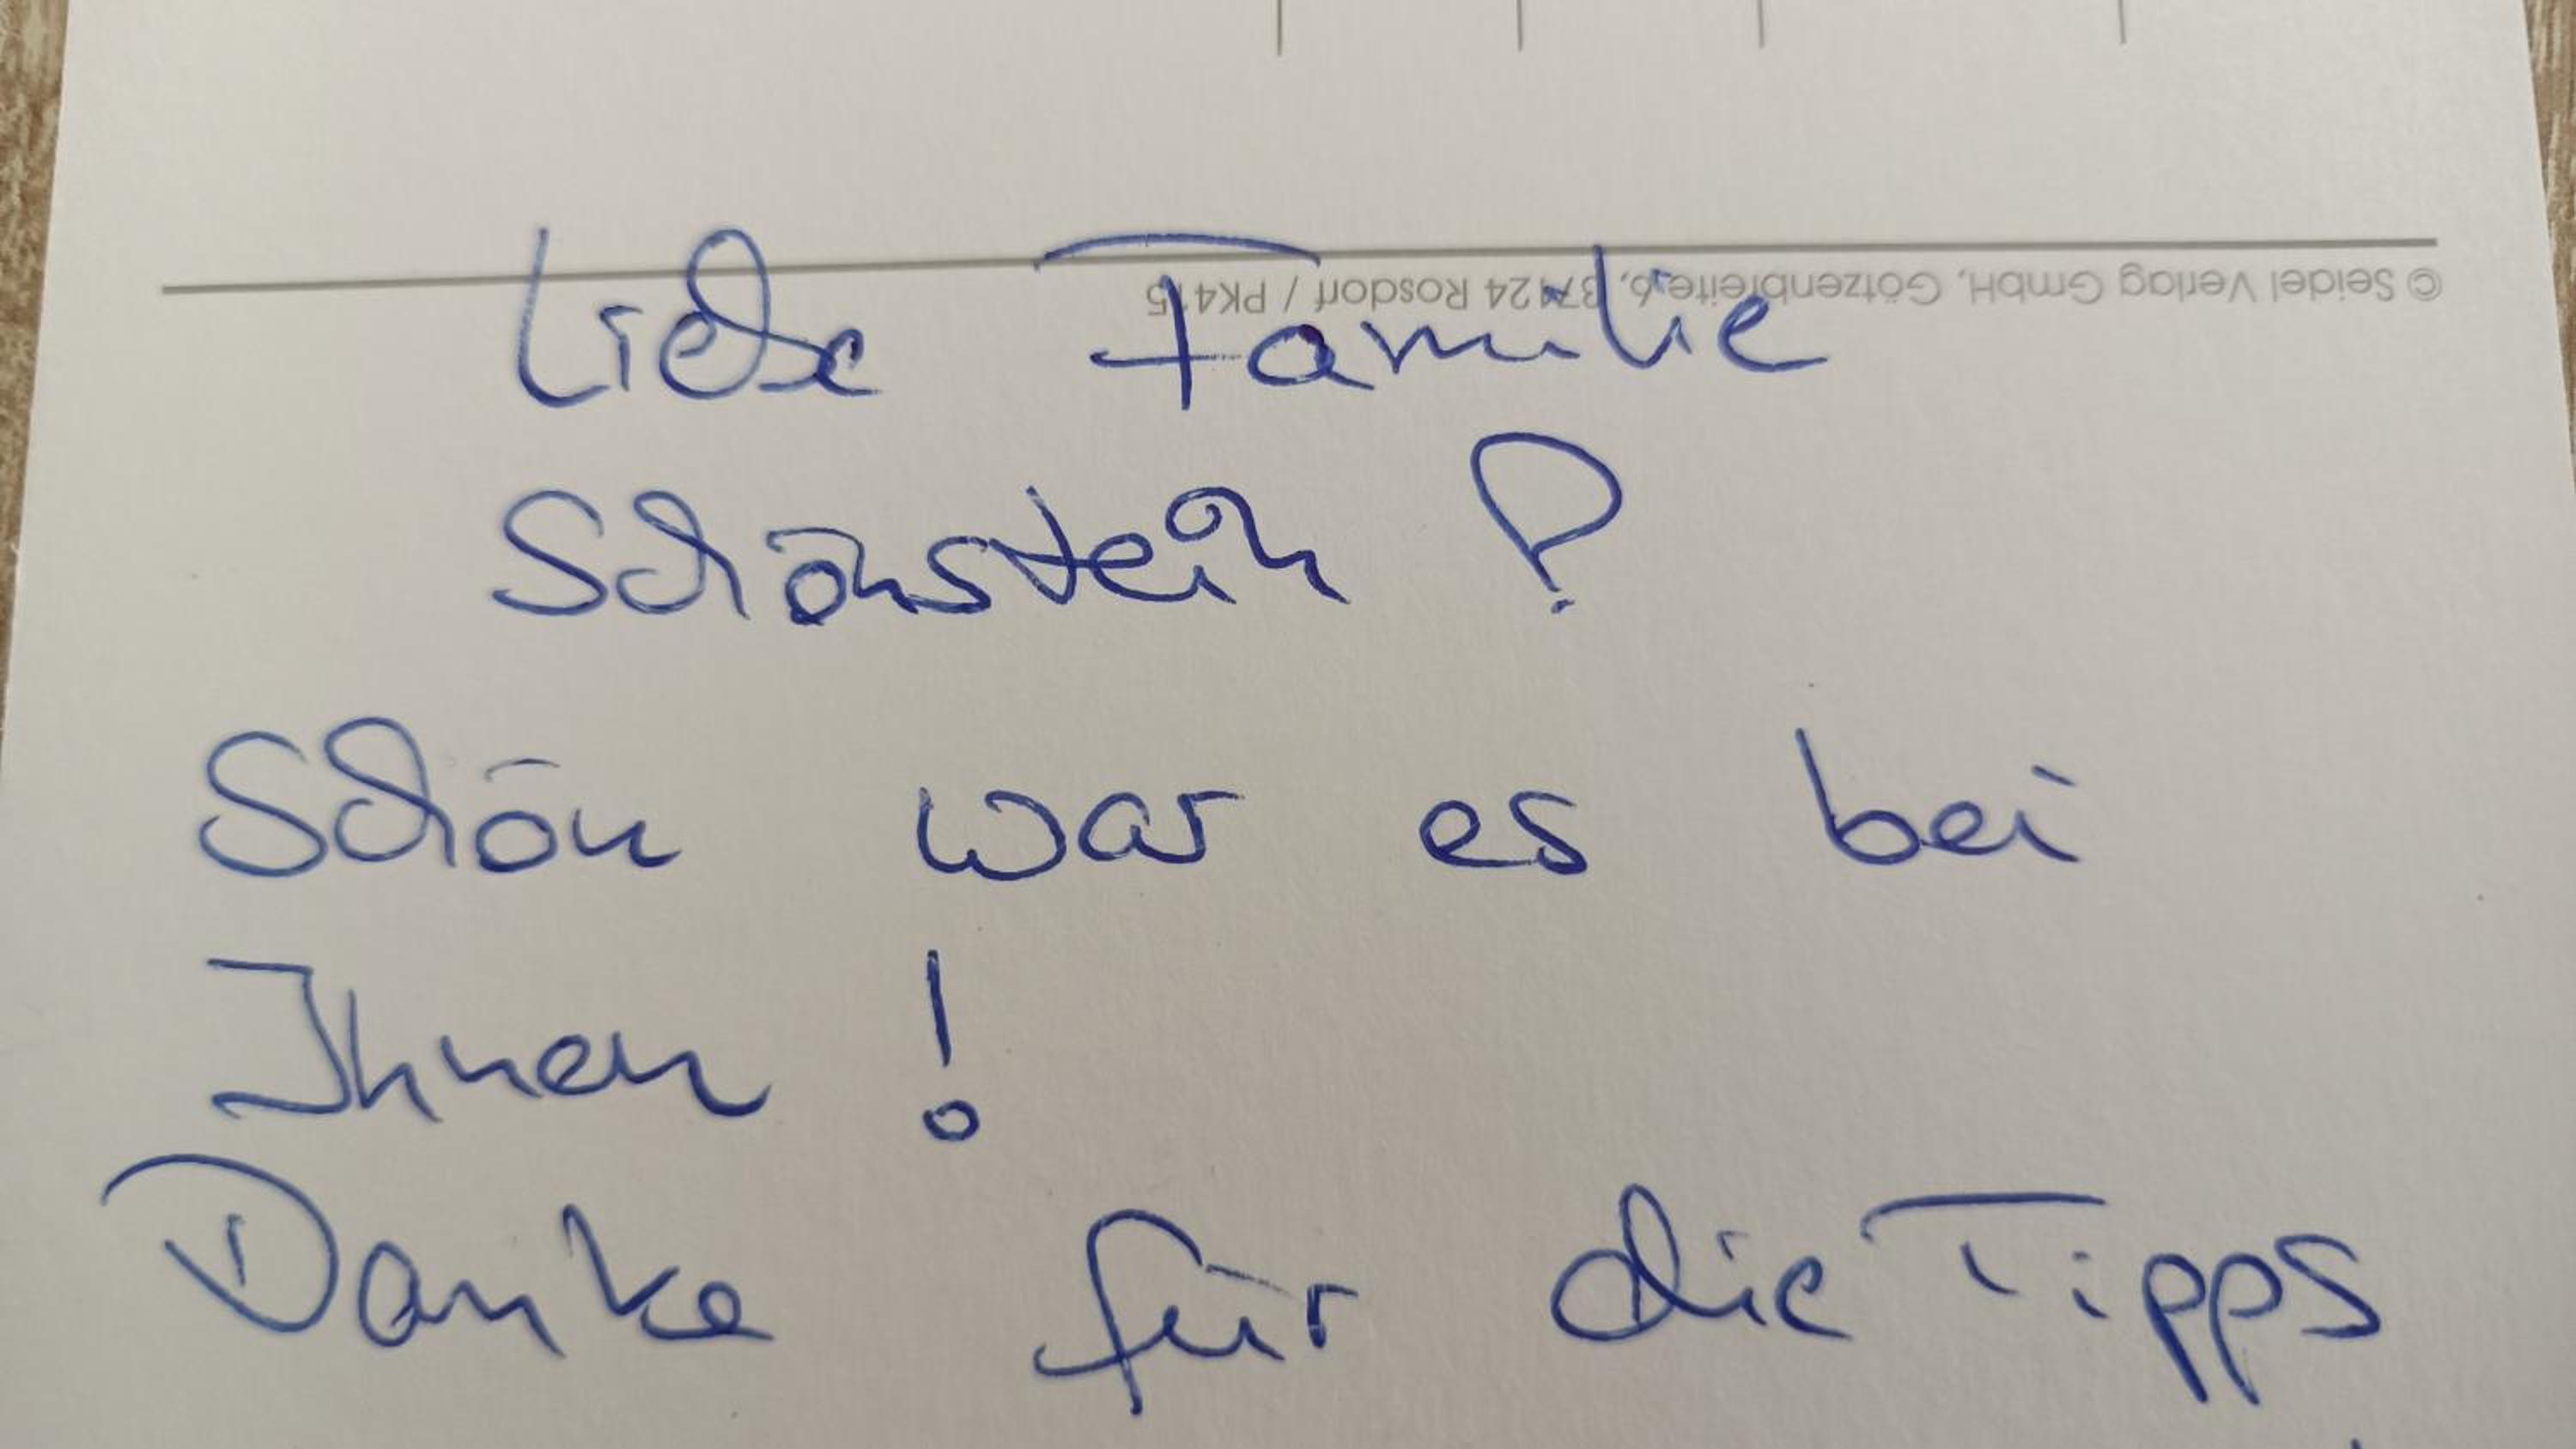 Liebe Familie
© Seidel Verlag GmbH, Götzenbreite 6, 37124 Rosdorf / PK415
Schönstein !
Schön war es bei
Ihnen !
Danke für die Tipps